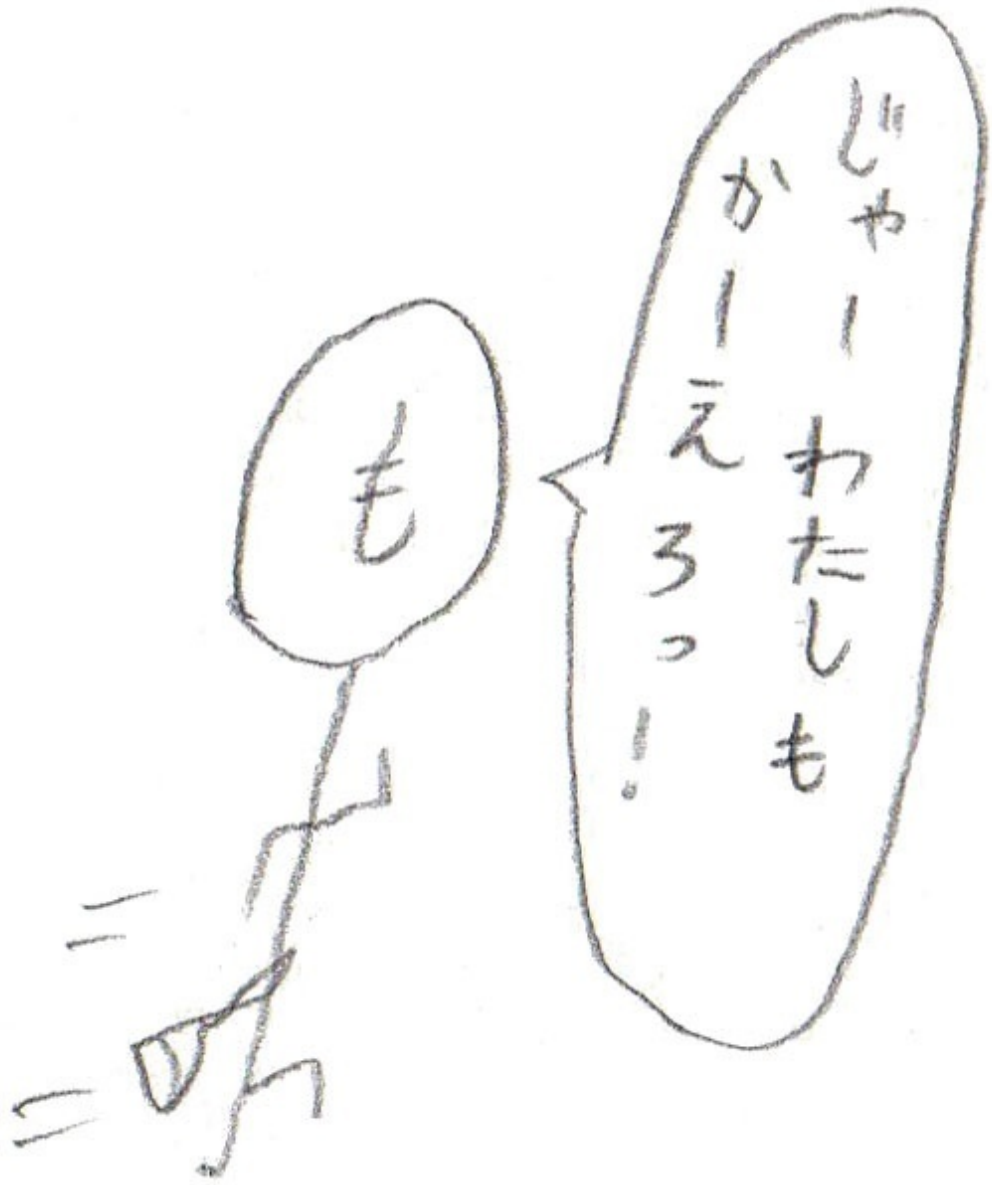 じゃー わたしも
かーえろっ!
も